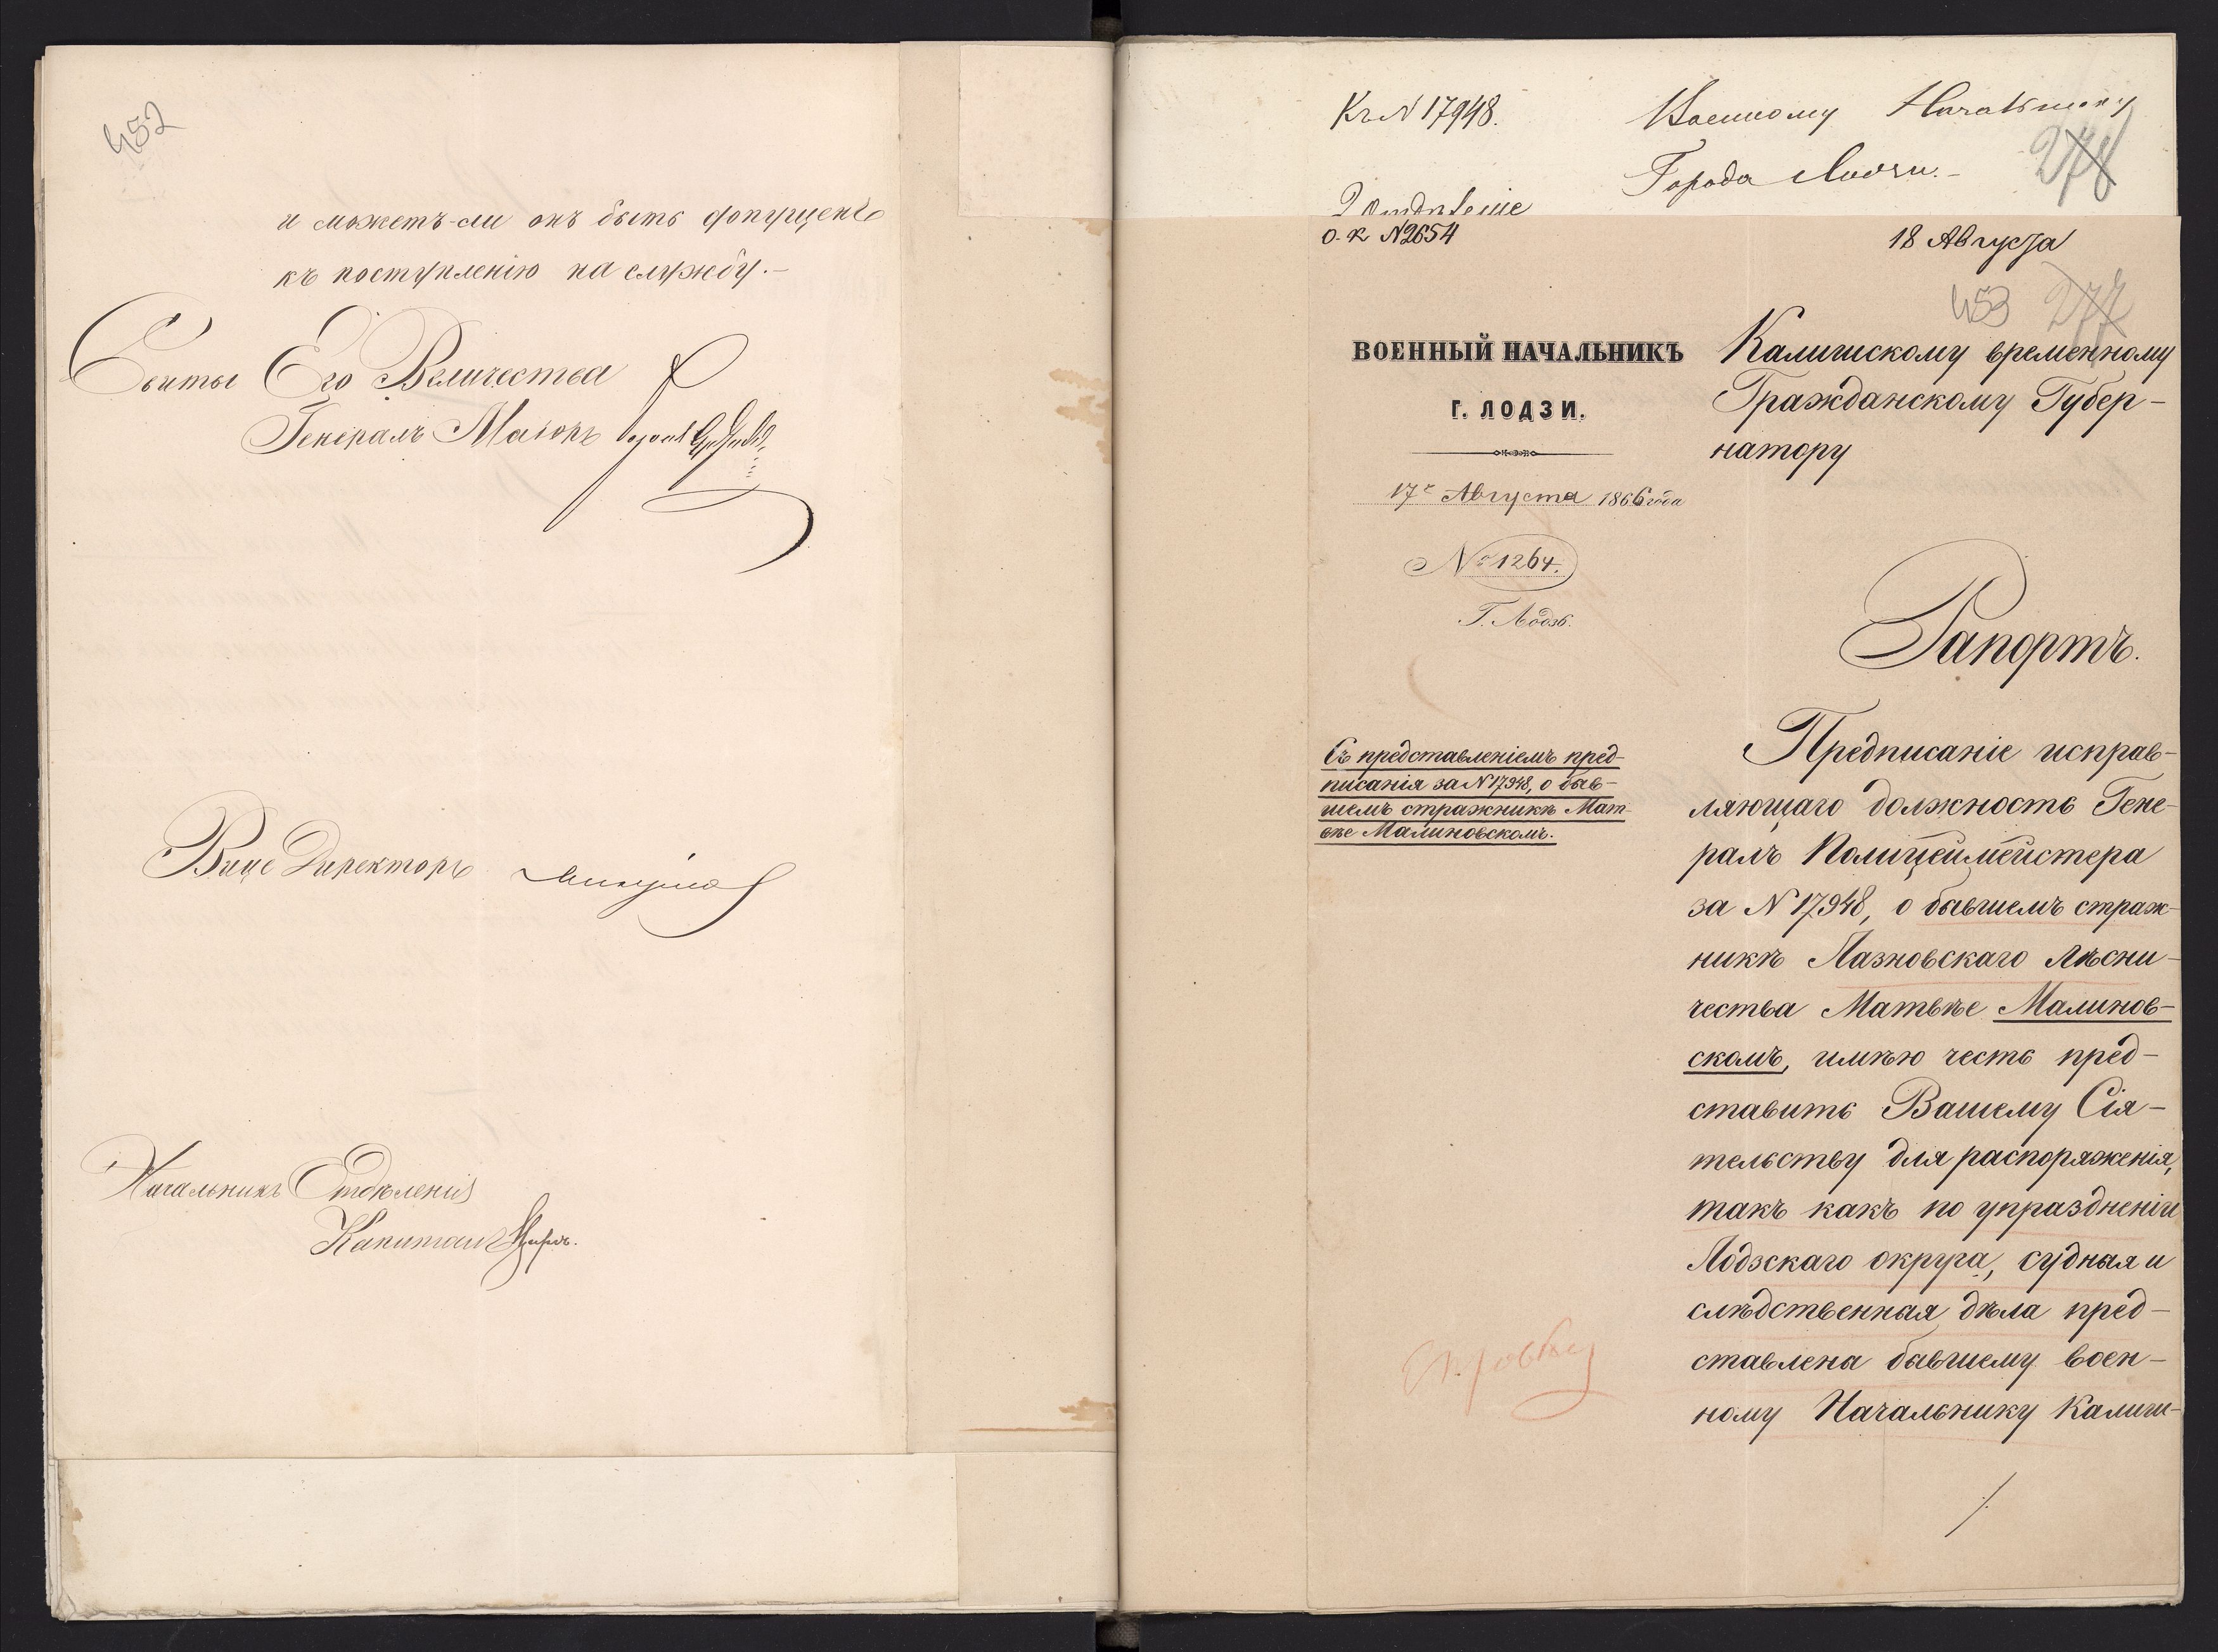 452
и можетъ-ли онъ быть допущенъ
къ поступленію на службу.-
Свиты Его Величества
Генералъ Маіоръ
Вице Директоръ
Начальникъ Отдѣленія
Капитанъ
Къ N 17948.
Военному Начальнику
Города Лодзи.-
278
2 Отдѣленіе
О. К. N2654
18 Августа
453 277
ВОЕННЫЙ НАЧАЛЬНИКЪ
Г. ЛОДЗИ.
17го Августа 1866 года
№ 1264.
Г. Лодзь.
Калишскому временному
Гражданскому Губер-
натору
Рапортъ.
Съ представленіемъ пред-
писанія за N17948, о быв-
шемъ стражникѣ Мат-
вѣе Малиновскомъ.
Предписаніе исправ-
ляющаго должность Гене-
ралъ Полицеймейстера
за N 17948, о бывшемъ страж-
никѣ Лазновскаго Лѣсни-
чества Матвѣе Малинов-
скомъ, имѣю честь пред-
ставить Вашему Сія-
тельству для распоряженія,
такъ какъ по упраздненіи
Лодзскаго округа, судная и
слѣдственная дѣла пред-
ставлена бывшему воен-
ному Начальнику Калиш-